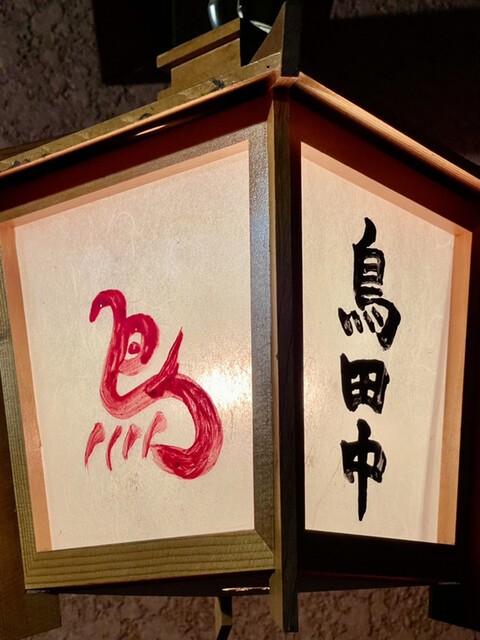 鳥
鳥田中